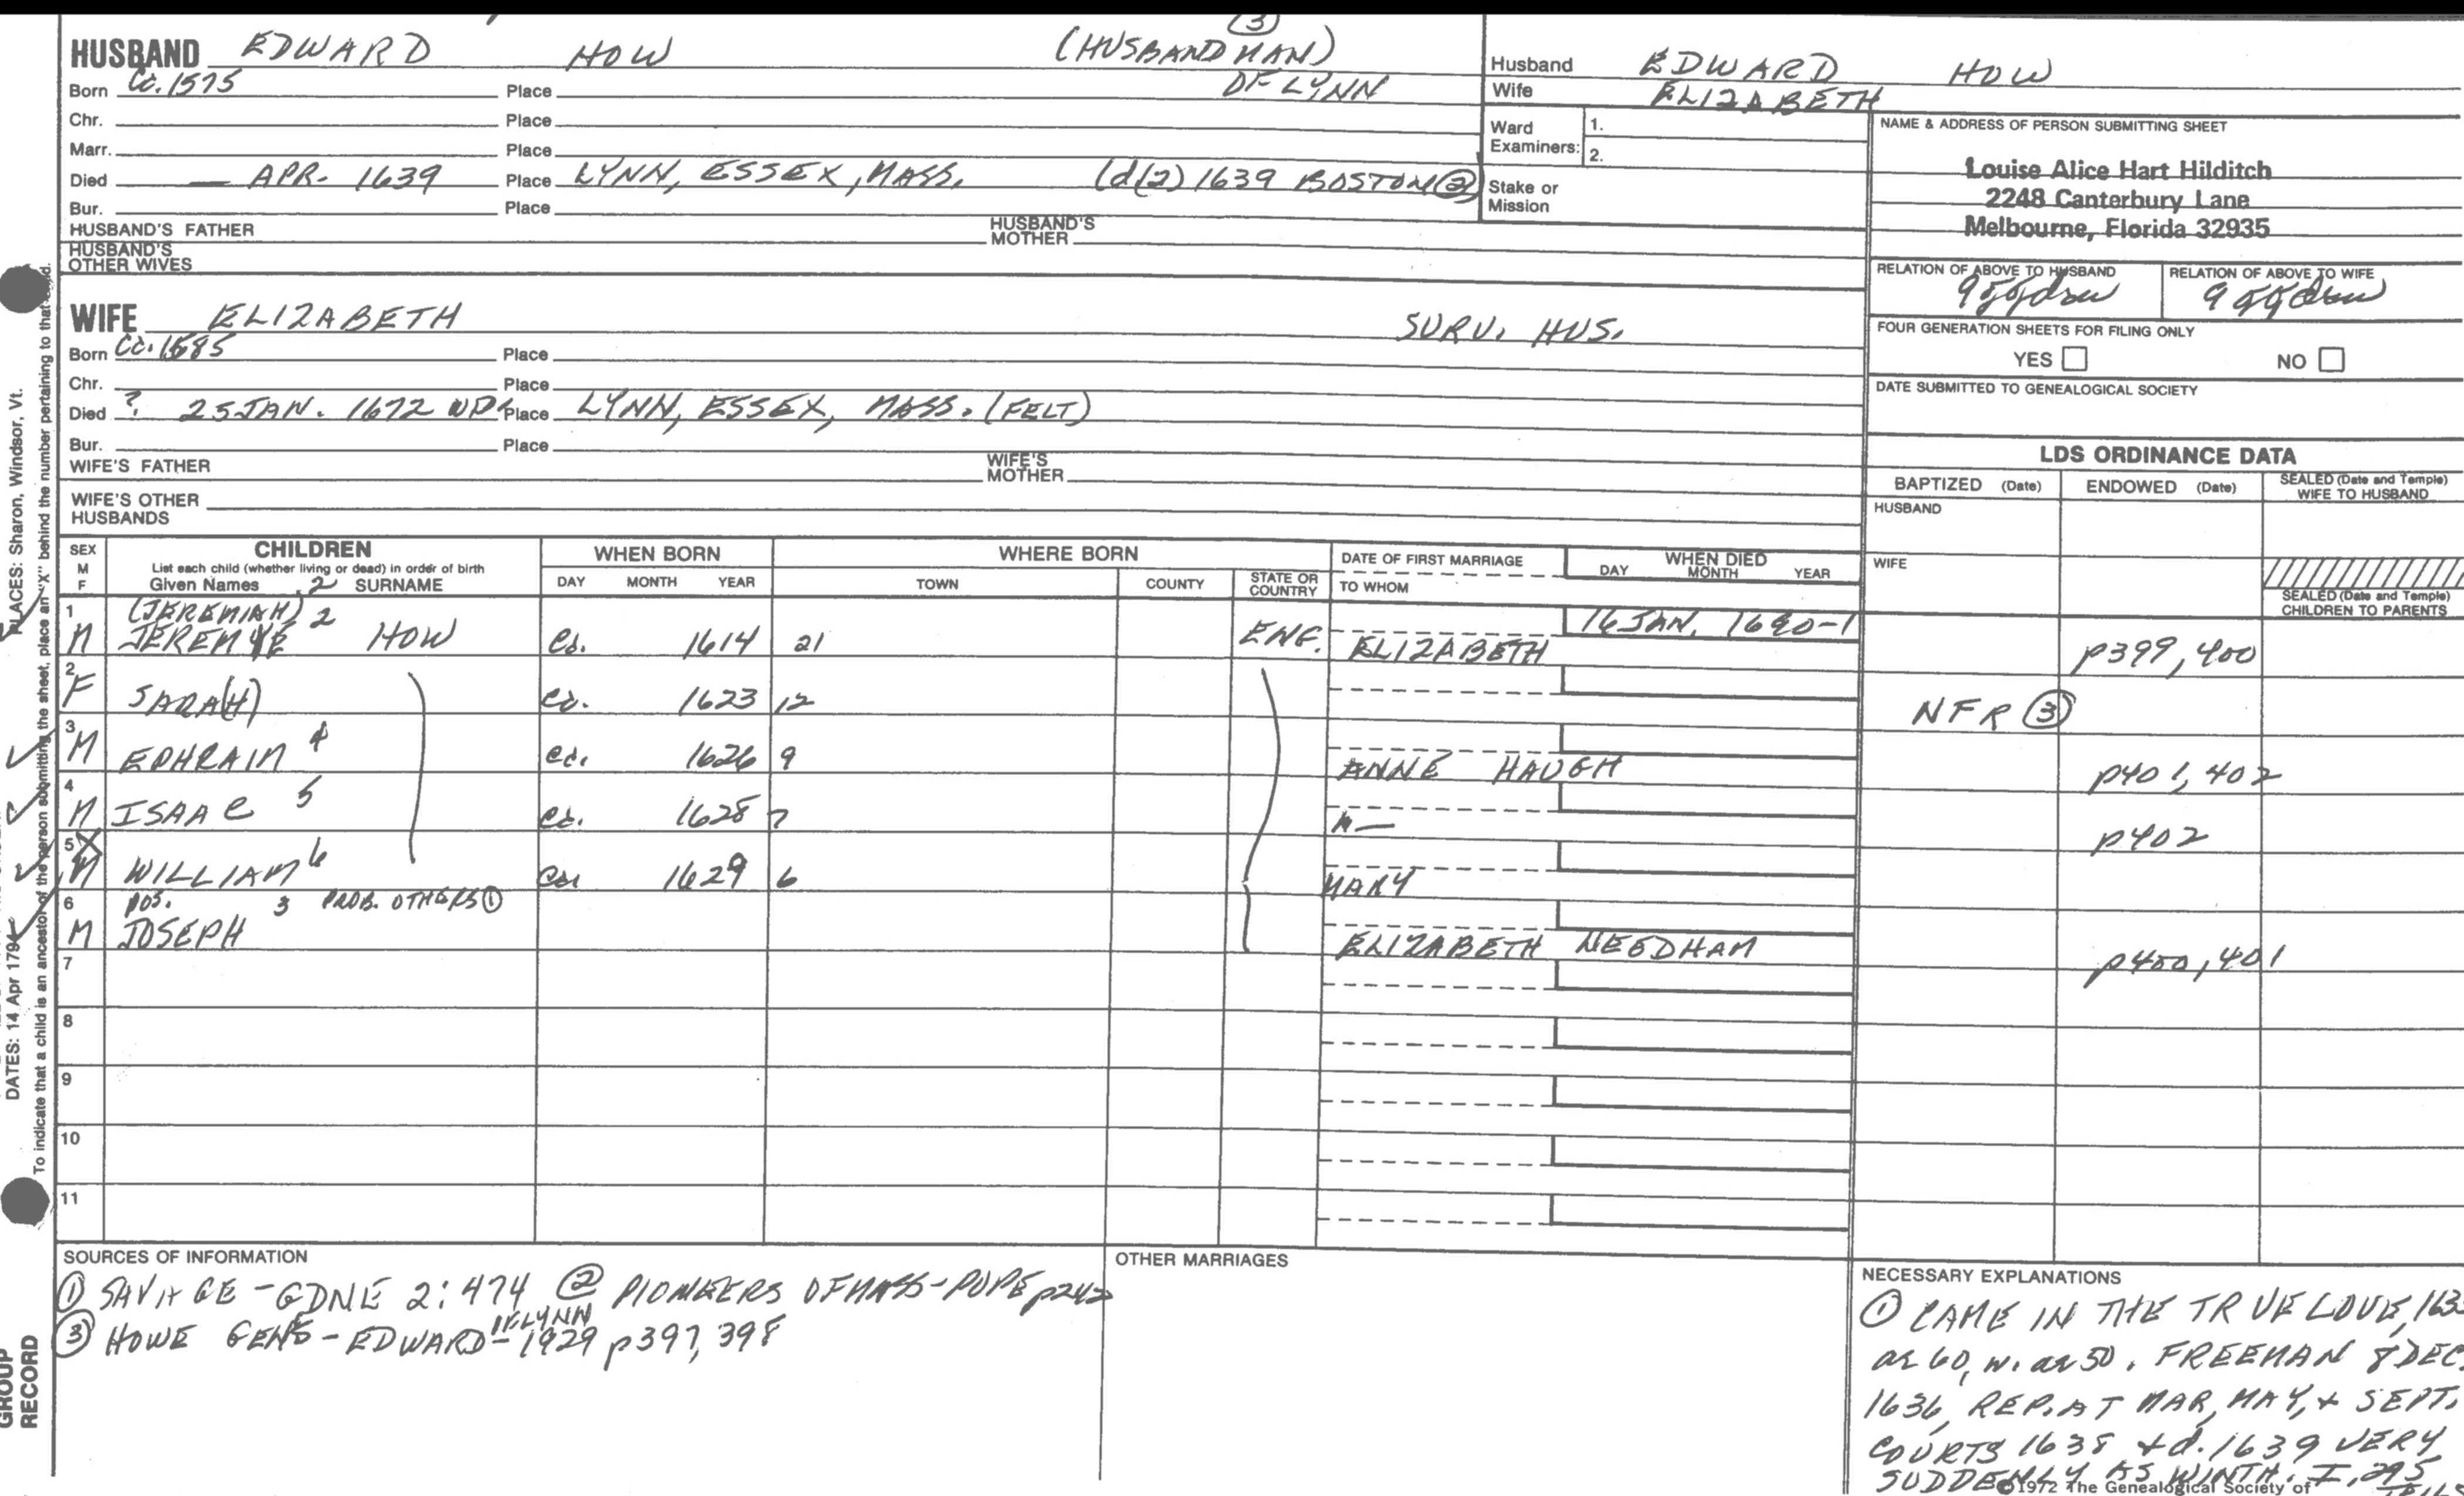 (3)
HUSBAND EDWARD HOW (HUSBANDMAN)
OF LYNN
Born Ca. 1575 Place
Chr. Place
Marr. Place
Died — APR. 1639 Place LYNN, ESSEX, MASS. (d(2) 1639 BOSTON (2)
Bur. Place
HUSBAND'S FATHER HUSBAND'S MOTHER
HUSBAND'S OTHER WIVES
WIFE ELIZABETH SURV. HUS.
Born Ca. 1585 Place
Chr. Place
Died ? 25 JAN. 1672 Place LYNN, ESSEX, MASS. (FELT)
Bur. Place
WIFE'S FATHER WIFE'S MOTHER
WIFE'S OTHER HUSBANDS
Husband EDWARD HOW
Wife ELIZABETH
Ward Examiners: 1.
2.
Stake or Mission
NAME & ADDRESS OF PERSON SUBMITTING SHEET
Louise Alice Hart Hilditch
2248 Canterbury Lane
Melbourne, Florida 32935
RELATION OF ABOVE TO HUSBAND RELATION OF ABOVE TO WIFE
FOUR GENERATION SHEETS FOR FILING ONLY
YES NO
DATE SUBMITTED TO GENEALOGICAL SOCIETY
LDS ORDINANCE DATA
BAPTIZED (Date) ENDOWED (Date) SEALED (Date and Temple) WIFE TO HUSBAND
HUSBAND
WIFE
SEALED (Date and Temple) CHILDREN TO PARENTS
SEX M F CHILDREN WHEN BORN WHERE BORN DATE OF FIRST MARRIAGE WHEN DIED
List each child (whether living or dead) in order of birth
Given Names 2 SURNAME DAY MONTH YEAR TOWN COUNTY STATE OR COUNTRY TO WHOM DAY MONTH YEAR
1 (JEREMIAH) 2 16 JAN. 1690-1
M JEREMYE HOW Ca. 1614 21 ENG. ELIZABETH p399, 400
2 F SARA(H) Ca. 1623 12 NFR (3)
3 M EPHRAIM 4 Ca. 1626 9 ANNE HAUGH p401, 402
4 M ISAAC 5 Ca. 1628 7 M— p402
5 X M WILLIAM 6 Ca. 1629 6 MARY
6 POS. 3 PROB. OTHERS (1)
M JOSEPH ELIZABETH NEEDHAM p400, 401
7
8
9
10
11
SOURCES OF INFORMATION
(1) SAVAGE - GDNE 2:474 (2) PIONEERS OF MASS - POPE p242
(3) HOWE GENS - EDWARD OF LYNN - 1929 p397, 398
OTHER MARRIAGES
NECESSARY EXPLANATIONS
(1) CAME IN THE TRUE LOVE, 163
ae 60, w. ae 50. FREEMAN 8 DEC.
1636, REP. AT MAR, MAY, + SEPT.
COURTS 1638 + d. 1639 VERY
SUDDENLY AS WINTH. I, 295
©1972 The Genealogical Society of
PLACES: Sharon, Windsor, Vt.
DATES: 14 Apr 1794
To indicate that a child is an ancestor of the person submitting the sheet, place an "X" behind the number pertaining to that child.
GROUP
RECORD